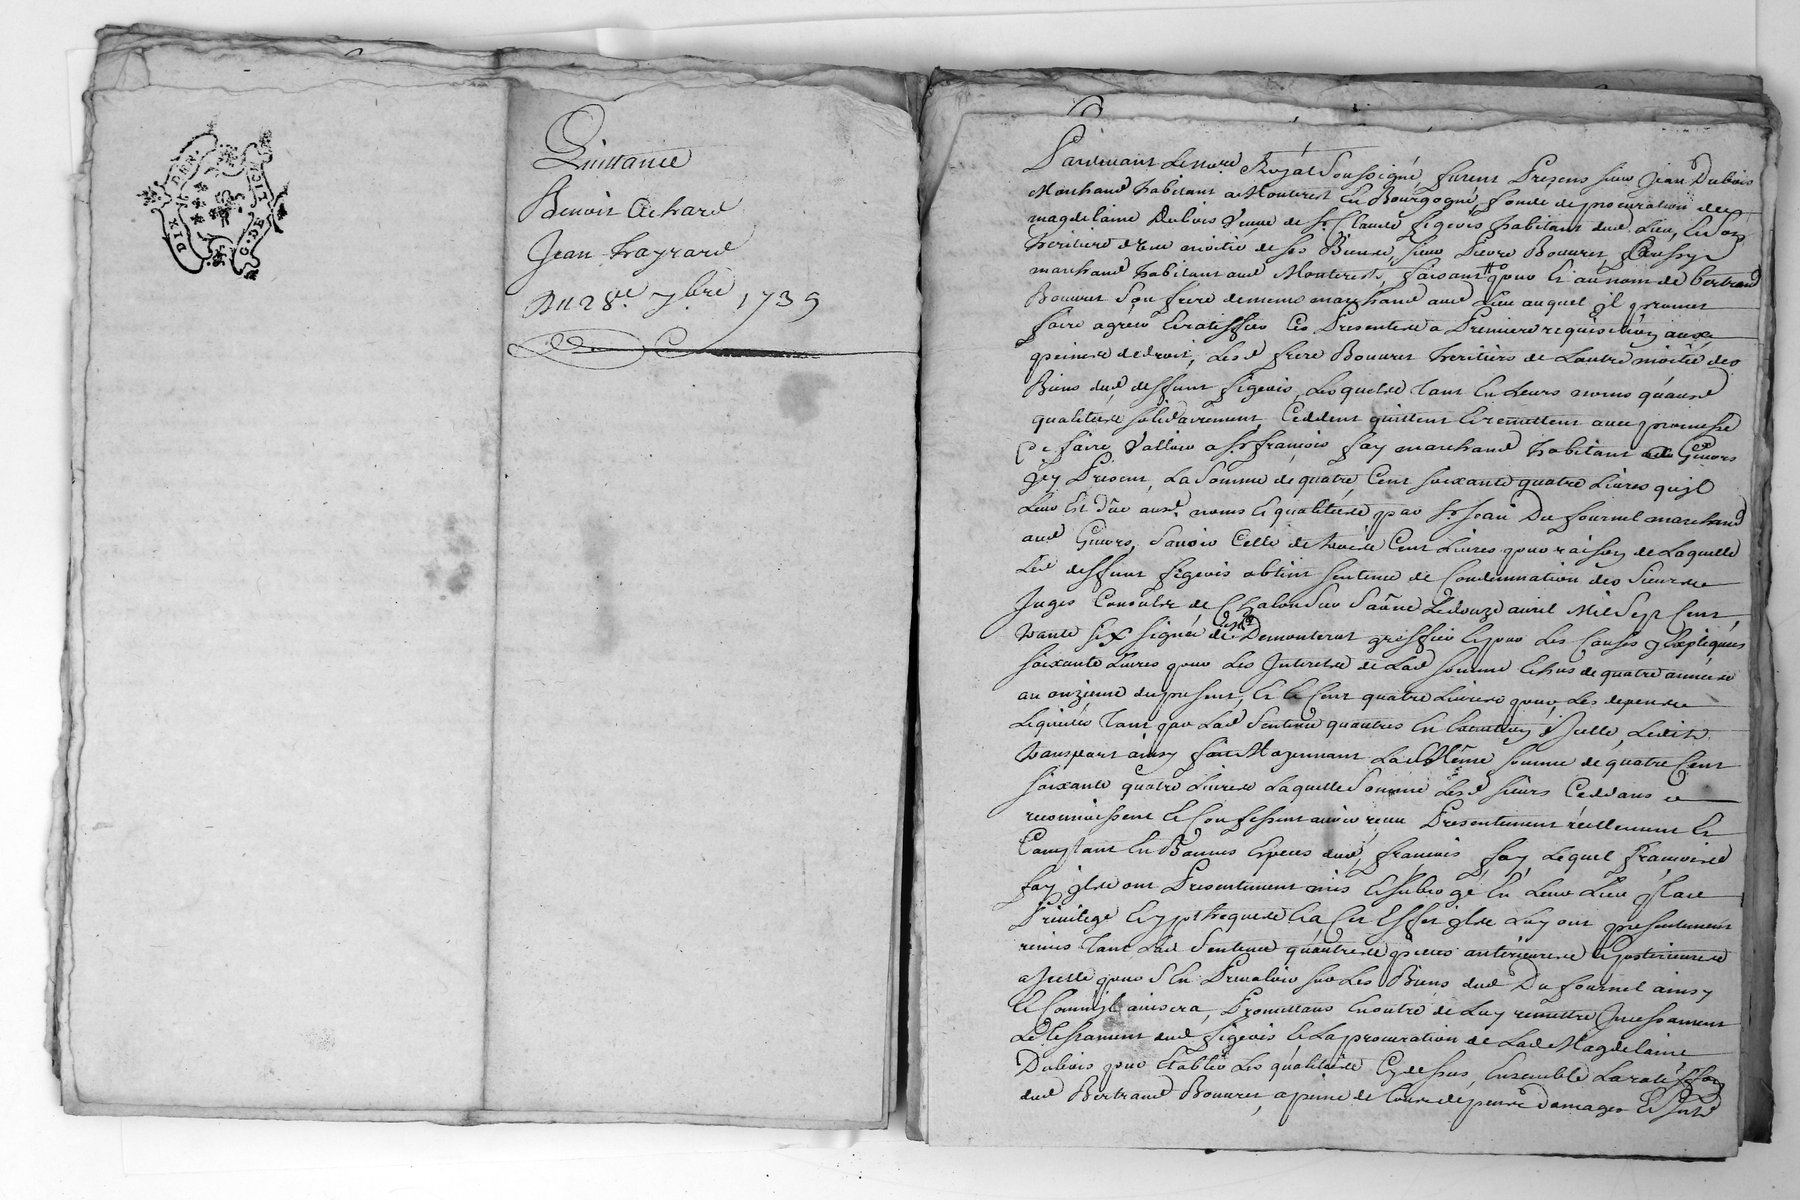 DIX DEN.
G. DE
Quittance
Benoit Achard
Jean hayrard
Du 28e. 7bre 1735
Pardevant Le nore. Royal Soussigné furent Presens sieur Jean Dubois
Marchand habitant a Monteret En Bourgogne, fondé de procuration de
magdelaine Dubois Veuve de Sr. Claude figeois habitant dud. Lieu,
heritiere d'une moitié de ses Biens, sieur Pierre Bouuret Aussy
marchand habitant aud Monteret, faisant pour Et au nom de bertrand
Bouuret son frere de meme marchand aud Lieu auquel il promet
faire agreer Et ratiffier Ces Presentes a Premiere requisition aux
peines de droit, Lesd frere Bouuret heritiers de Lautre moitié des
Biens dud deffunt figeois, Lesquels tant En Leurs noms qu'ausd
qualités solidairement, Ceddent quittent Et remettent avec promesse
De faire Valloir a Sr françois fay marchand habitant a Givors
Jcy Present, La Somme de quatre Cent soixante quatre Livres qu'il
Leur Est dûe ausd. noms Et qualités par Sr Jean Du fournel marchand
aud Givors, Sauoir Celle de trois Cent Livres pour raison de Laquelle
Led deffunt figeois obtint sentence de Condemnation des Sieurs
Juges Consuls de Chalon Sur Saône Le douze auril Mil Sept Cent
trante six signée Demonteret greffier Et pour Les Causes y Expliquées
soixante Livres pour Les Jnterets de Lad somme Echus de quatre années
au onzieme du present, Et Cent quatre Livres pour Les depens
Liquidés tant par Lad Sentence qu'autres En Execution d'Jcelle, Ledit
transport ainsy fait Moyennant La Même somme de quatre Cent
soixante quatre Livres Laquelle Somme Lesd sieurs Ceddans
reconnoissent Et Confessent auoir reçu Presentement réellement Et
Comptant En Bonnes Especes dud françois fay, Lequel françois
fay ils ont Presentement mis Et subrogé En Leur Lieu place
Priuilege Et ypotheque Et a Cet Effet ils Luy ont presentement
remis tant Lad Sentence qu'autres pieces anterieures Et posterieures
a Jcelle pour S'En Preualoir sur Les Biens dud Du fournel ainsy
Et Comm'il auisera, Promettans En outre de Luy remettre Jncessament
Le testament dud figeois Et La procuration de Lad Magdelaine
Dubois pour Etablir Les qualités Cy dessus, Ensemble La
dud Bertrand Bouuret, a peine de tous depens domages